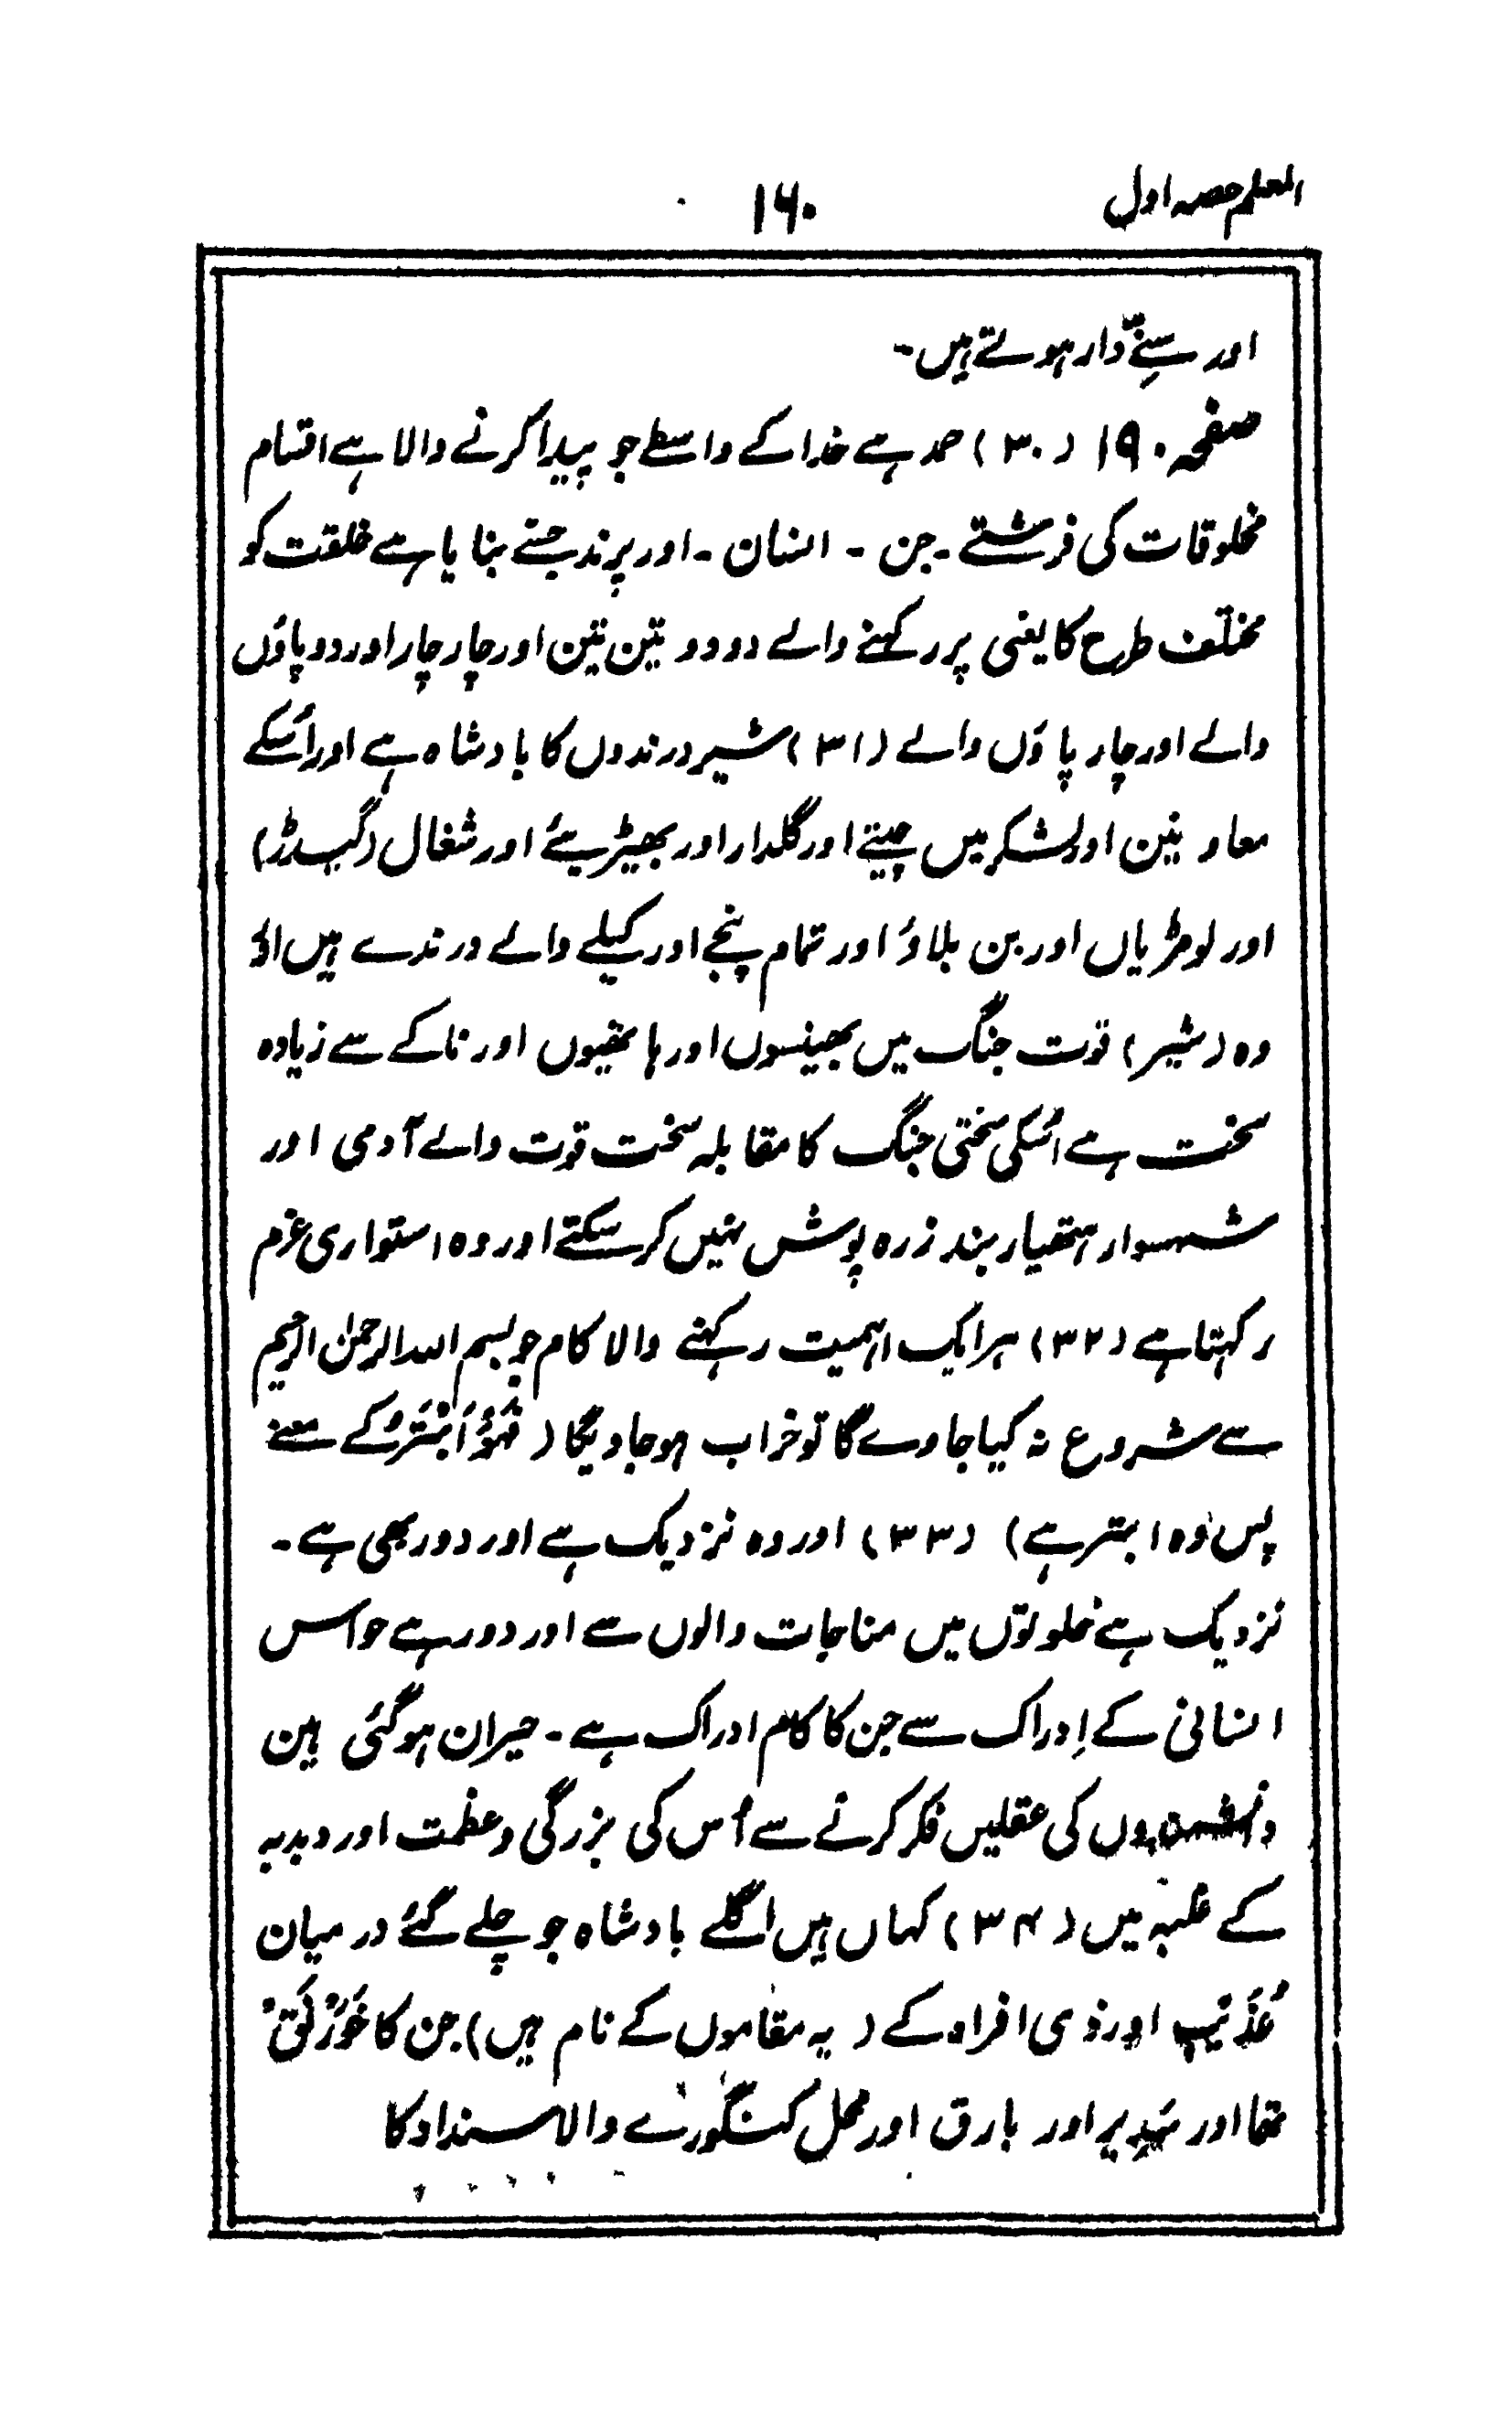 المعلم حصہ اول
۱۶۰
اور سینے دار ہوتے ہیں۔
صفحہ ۱۹۰ (۳۰) حمد ہے خدا کے واسطے جو پیدا کرنے والا ہے اقسام
مخلوقات کی فرشتے۔ جن ۔ انسان ۔ اور پرند جسنے بنایا ہے خلقت کو
مختلف طرح کا یعنی پر رکہنے والے دو دو تین تین اور چار چار اور دو پاؤں
والے اور چار پاؤں والے (۳۱) شیر درندوں کا بادشاہ ہے اور اُسکے
معاونین اور لشکر میں چیتے اور گلدار اور بھیڑیئے اور شغال (گیدڑ)
اور لومڑیاں اور بن بلاؤ اور تمام پنجے اور کیلے والے درندے ہیں اور
وہ (شیر) قوت جنگ میں بھینسوں اور ہاتھیوں اور ناکے سے زیادہ
سخت ہے اُسکی سختی جنگ کا مقابلہ سخت قوت والے آدمی اور
شہسوار ہتھیار بند زرہ پوش نہیں کر سکتے اور وہ استواری عزم
رکہتا ہے (۳۲) ہر ایک اہمیت رکہنے والا کام جو بسم اللہ الرحمٰن الرحیم
سے شروع نہ کیا جاوے گا تو خراب ہو جاویگا (فَہُوَ اَبْتَرُ کے معنے
پس وہ ابتر ہے) (۳۳) اور وہ نزدیک ہے اور دور بھی ہے۔
نزدیک ہے خلوتوں میں مناجات والوں سے اور دور ہے حواس
انسانی کے اِدراک سے جن کا کام ادراک ہے۔ حیران ہو گئی ہین
دانشمندوں کی عقلیں فکر کرنے سے اُس کی بزرگی و عظمت اور دبدبہ
کے غلبہ میں (۳۴) کہاں ہیں اگلے بادشاہ جو چلے گئے درمیان
عُذَیْب اور ذی افراد کے (یہ مقاموں کے نام ہیں) جن کا خَوَرْنَق
تھا اور سَدِیر اور بارق اور محل کنگورے والا سنداد کا